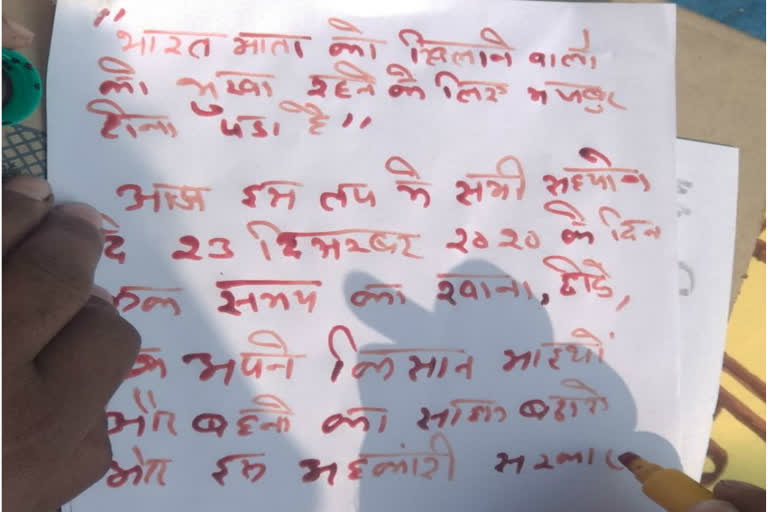 "भारत माता को खिलाने वालो
को भुखा रहने के लिए मजबुर
होना पडा है"
आज इस तप मे सभी सहयोग
दे २३ दिसम्बर २०२० के दिन
एक समय का खाना, छोडे,
अपने किसान भाइयों
और बहनो का साहस बढाये
और इस अहंकारी सरकार